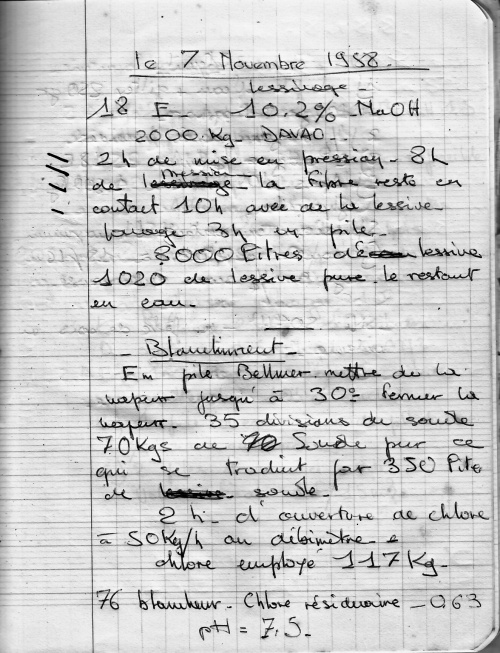 le 7 Novembre 1958.
Lessivage -
18 E - 10.2% NaOH
2000 Kg - DAVAO -
2 h de mise en pression - 8h
de pression la fibre reste en
contact 10h avec de la lessive
lavage 3h en pile -
8000 litres de lessive
1020 de lessive pure. le restant
en eau -
- Blanchiment -
En pile Bellmer mettre de la
vapeur jusqu'à 30° fermer la
vapeur. 35 divisions de soude
70 Kgs de Soude pur ce
qui se traduit par 350 lits
de soude -
2 h - d'ouverture de chlore
à 50Kg/h au débimètre
chlore employé 117 Kg -
76 blancheur - Chlore résiduaire - 0.63
pH = 7,5 -